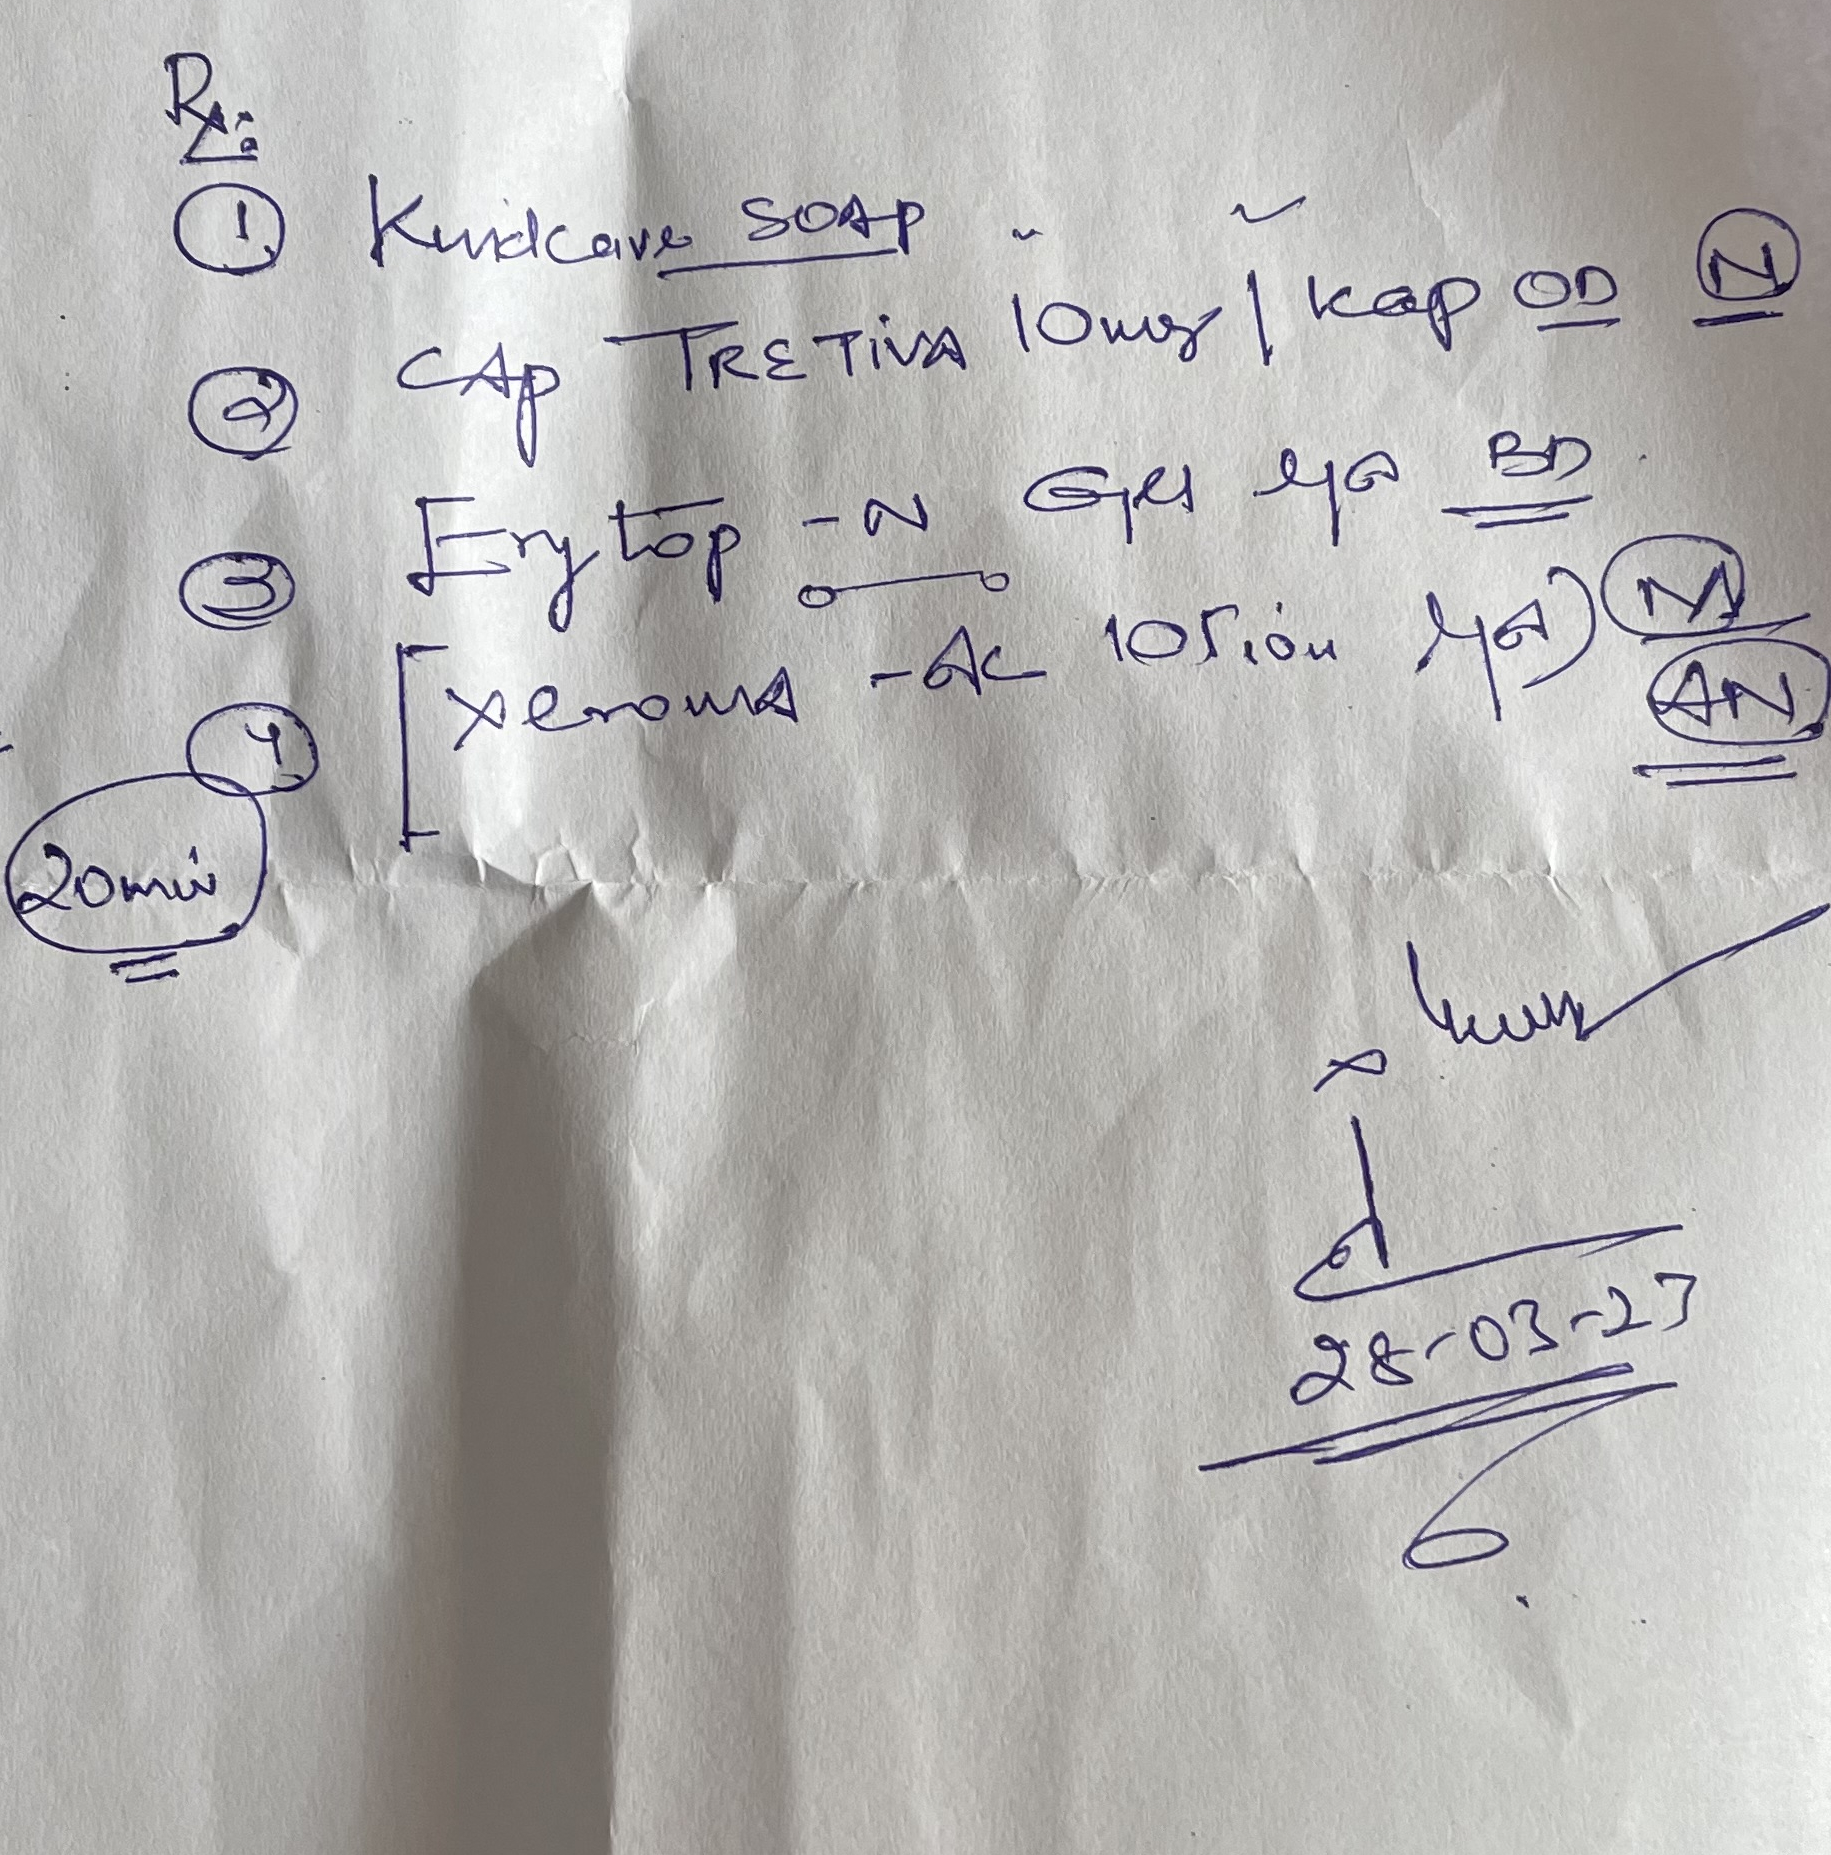 Rx:
① Kindcare SOAP
② CAP TRETIVA 10mg 1 kap OD Ⓝ
③ Erytop -N Gel L/A BD
④ [Xeroma -AC lotion L/A) M
AN
20min
28-03-23